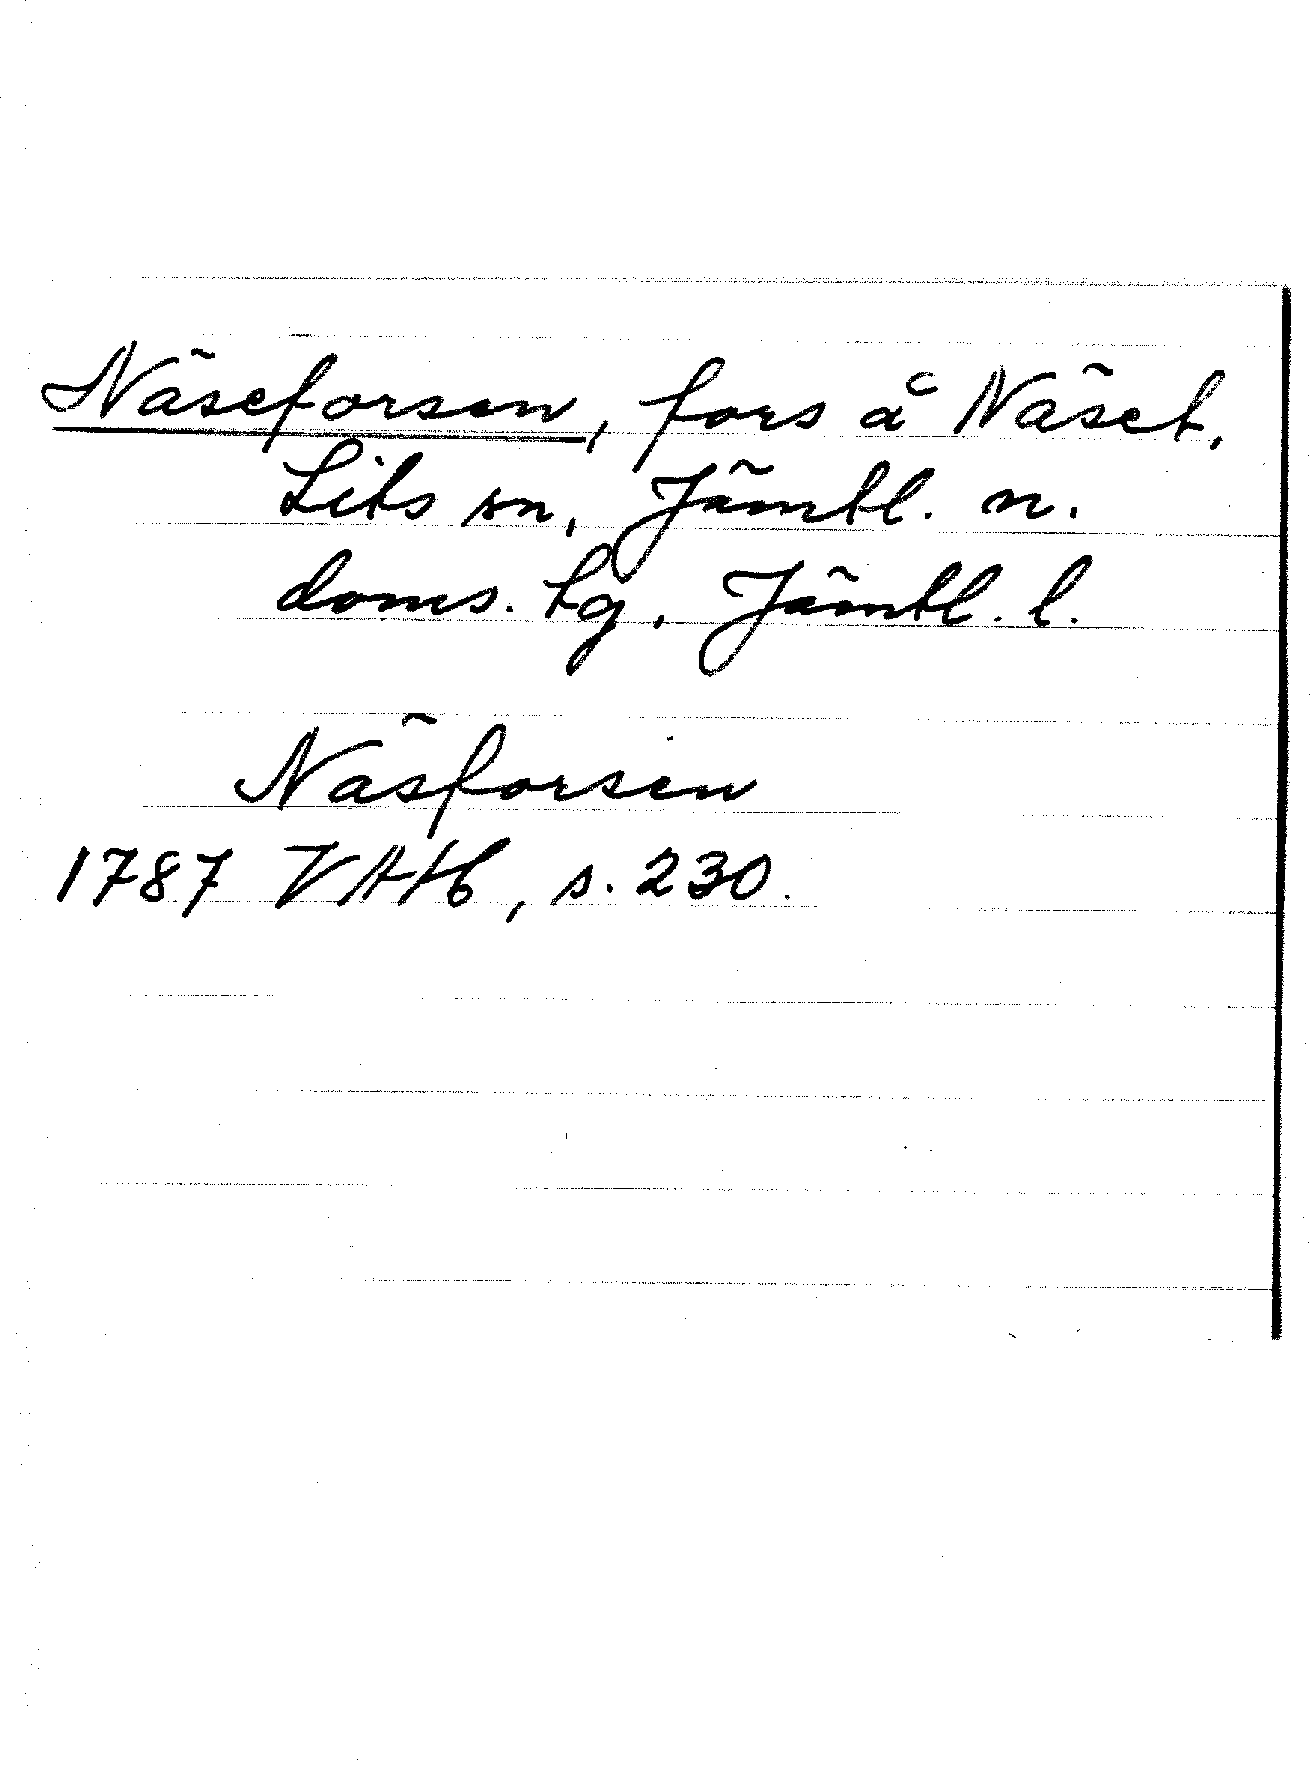 Näseforsen, fors å Näset,
Lits sn, Jämtl. n.
doms. tg, Jämtl. l.
Näsforsen
1787 VAH, s. 230.